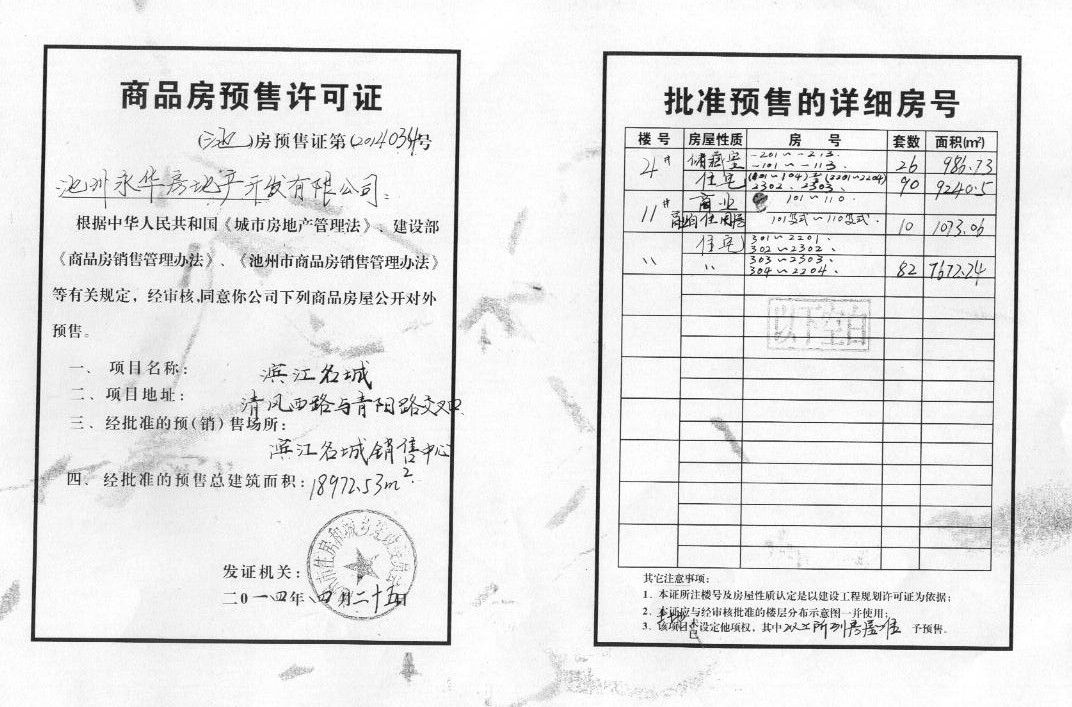 商品房预售许可证
(池)房预售证第(2014034)号
池州永华房地产开发有限公司：
根据中华人民共和国《城市房地产管理法》、建设部
《商品房销售管理办法》、《池州市商品房销售管理办法》
等有关规定，经审核,同意你公司下列商品房屋公开对外
预售。
一、项目名称： 滨江名城
二、项目地址： 清风西路与青阳路交叉口
三、经批准的预(销)售场所：
滨江名城销售中心
四、经批准的预售总建筑面积：18972.53m²
发证机关：
二0一四年四月二十五日
批准预售的详细房号
楼号 房屋性质 房号 套数 面积(m²)
4# 储藏室 -201～-213、 -101～-113、 26 986.73
住宅 (101～104)至(2201～2204) 2302、2303、 90 9240.5
11# 商业 101～110、
101复式～110复式、 10 1073.06
住宅 301～2201、
302～2302、
〃 〃 303～2303、
304～2204、 82 7672.24
以下空白
其它注意事项：
1．本证所注楼号及房屋性质认定是以建设工程规划许可证为依据；
2．本证应与经审核批准的楼层分布示意图一并使用；
3．该项目土地已设定他项权，其中以上所列房屋准予预售。